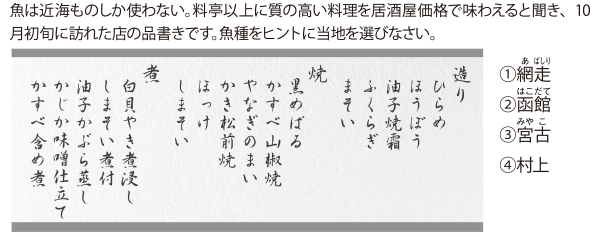 魚は近海ものしか使わない。料亭以上に質の高い料理を居酒屋価格で味わえると聞き、10
月初旬に訪れた店の品書きです。魚種をヒントに当地を選びなさい。
造り
ひらめ
ほうぼう
油子焼霜
ふくらぎ
まそい
焼
黒めばる
かすべ山椒焼
やなぎのまい
かき松前焼
ほっけ
しまそい
煮
白貝やき煮浸し
しまそい煮付
油子かぶら蒸し
かじか味噌仕立て
かすべ含め煮
①網走
あばしり
②函館
はこだて
③宮古
みやこ
④村上